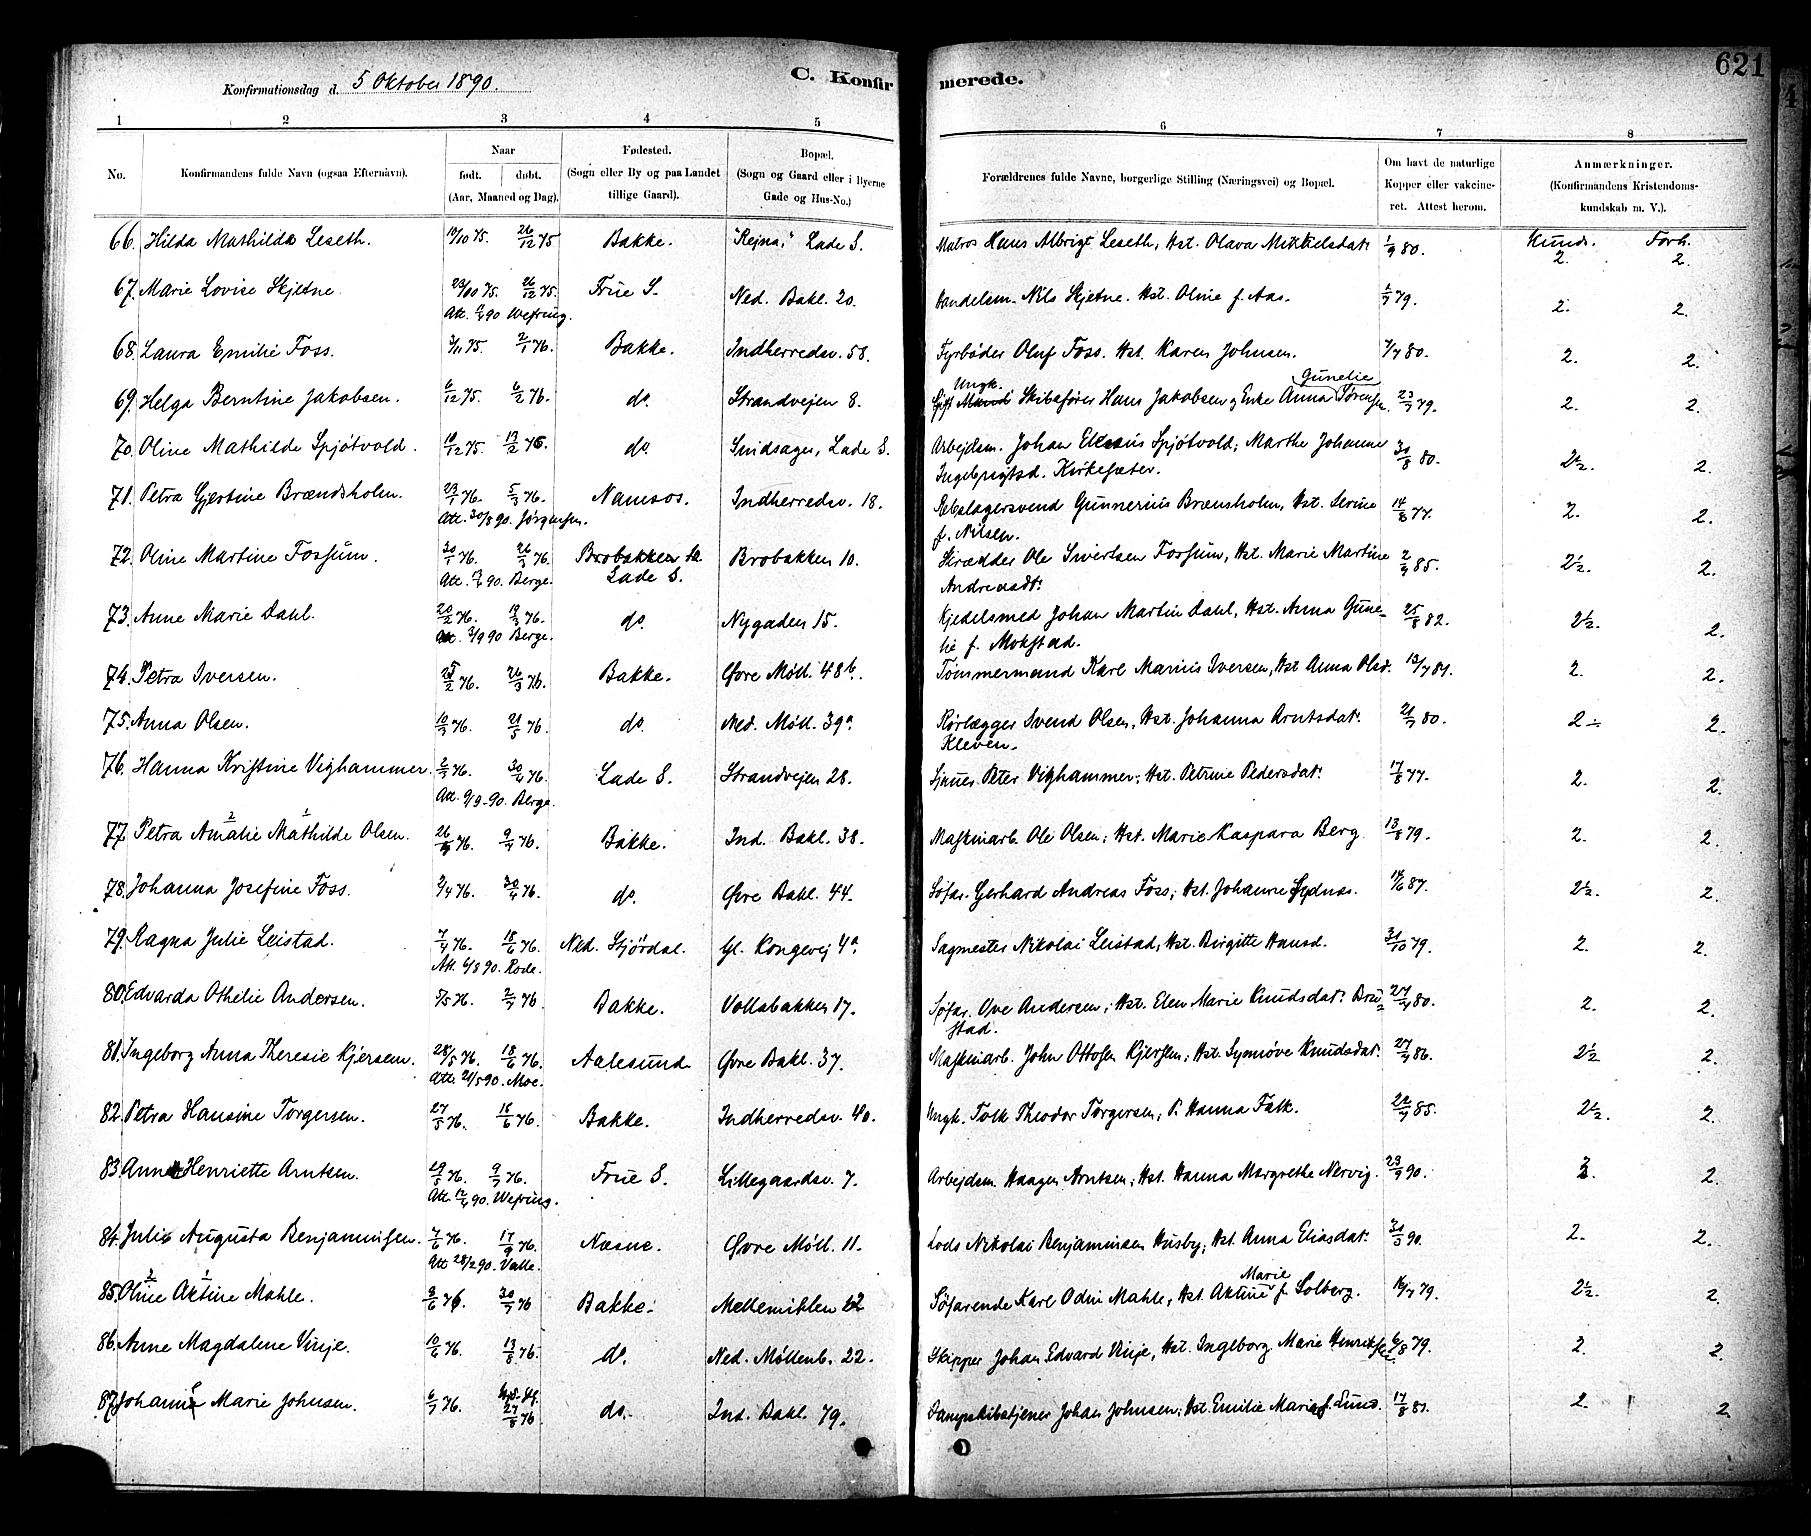 621
Konfirmationsdag d. 5 Oktober 1890.
C. Konfirmerede.
1 2 3 4 5 6 7 8
No. Konfirmandens fulde Navn (ogsaa Efternavn). Naar født. døbt. (Aar, Maaned og Dag). Fødested. (Sogn eller By og paa Landet tillige Gaard). Bopæl. (Sogn og Gaard eller i Byerne Gade og Hus-No.) Forældrenes fulde Navne, borgerlige Stilling (Næringsvei) og Bopæl. Om havt de naturlige Kopper eller vakcineret. Attest herom. Anmærkninger. (Konfirmandens Kristendomskundskab m. V.).
Kunds. Forh.
66. Hilda Mathilde Leseth. 19/10 75. 26/12 75 Bakke. "Rejna," Lade S. Matros Hans Albrigt Leseth, Hst. Olava Mikkelsdat. 1/9 80. 2. 2.
67. Marie Lovise Skjetne. 29/10 75. 26/12 75. Frue S. Ned. Bakl. 20. Handelsm. Nils Skjetne. Hst. Oline f. Aas. 1/7 79. 2. 2.
Att. 90 Wefring.
68. Laura Emilie Foss. 3/11 75. 2/1 76. Bakke. Indherredsv. 58. Fyrbøder Oluf Foss. Hst. Karen Johnsen. 7/7 80. 2. 2.
69. Helga Berntine Jakobsen. 6/12 75. 6/2 76. do. Strandvejen 8. Ungk. Skibsfører Hans Jakobsen og Enke Anna Gunelie Sørensen. 23/7 79. 2. 2.
70. Oline Mathilde Spjøtvold. 10/12 75. 13/2 76. do. Smidsager, Lade S. Arbejdsm. Johan Spjøtvold; Marthe Johanne 30/8 80. 2½. 2.
Ingebrigtsd. Kirkesæter.
71. Petra Gjertine Brændsholm. 23/1 76. 5/3 76. Namsos. Indherredsv. 18. Rebslagersvend Gunnerius Brænsholm, Hst. Serine 14/8 77. 2. 2.
Att. 30/8 90. Jørgensen. f. Nilsen.
72. Oline Martine Fossum. 30/1 76. 26/3 76. Brobakken Lade S. Brobakken 10. Skrædder Ole Sivertsen Fossum, Hst. Marie Martine 2/9 85. 2½. 2.
Att. 90. Berge. Andreasdt.
73. Anne Marie Dahl. 20/2 76. 19/3 76. do. Nygaden 15. Kjedelsmed Johan Martin Dahl, Hst. Anna Gune- 25/8 82. 2½. 2.
Att. 3/9 90 Berge. lie f. Mokstad.
74. Petra Iversen. 25/2 76. 26/3 76. Bakke. Øvre Møll. 48b. Tømmermand Karl Marius Iversen, Hst. Anna Olsd. 13/7 81. 2. 2.
75. Anna Olsen. 10/3 76. 21/5 76. do. Ned. Møll. 39a Rørlægger Svend Olsen, Hst. Johanna Arntsdat. 21/7 80. 2 ÷ 2.
Kleven.
76. Hanna Kristine Vighammer. 2/3 76. 30/4 76. Lade S. Strandvejen 28. Sjaues. Peter Vighammer; Hst. Petrine Pedersdat. 17/8 77. 2. 2.
Att. 9/9-90. Berge.
77. Petra Amalie Mathilde Olsen. 26/3 76. 9/4 76. Bakke. Ind. Bakl. 38. Maskinarb. Ole Olsen; Hst. Marie Kaspara Berg. 13/8 79. 2. 2.
2 1
78. Johanna Josefine Foss. 3/4 76. 30/4 76. do. Øvre Bakl. 44. Søfar. Gerhard Andreas Foss; Hst. Johanne Sydnes. 14/6 87. 2½. 2.
79. Ragna Julie Leistad. 7/4 76. 18/6 76. Ned. Stjørdal. Gl. Kongevej 4a. Sagmester Nikolai Leistad, Hst. Birgitte Hansd. 31/10 79. 2. 2.
Att. 6/8 90. Rode.
80. Edvarda Othelie Andersen. 5/5 76. 2/7 76. Bakke. Voldsbakken 17. Søfar. Ove Andersen; Hst. Elen Marie Knudsdat. Bru- 27/7 80. 2. 2.
stad.
81. Ingeborg Anna Theresie Kjersem. 28/5 76. 18/6 76. Aalesund. Øvre Bakl. 37. Maskinarb. John Ottosen Kjersem; Hst. Synnøve Knudsdat. 27/9 86. 2½ 2.
Att. 21/5 90. Moe.
82. Petra Hansine Torgersen. 27/5 76. 18/6 76. Bakke. Indherredsv. 40. Ungk. Tolk Theodor Torgersen; P. Hanna Falk. 22/7 85. 2½. 2.
83. Anne Henriette Arntsen. 29/5 76. 9/7 76. Frue S. Lillegaardsv. 7. Arbejdsm. Haagen Arntsen; Hst. Hanna Margrethe Nervig. 23/9 90. 2. 2.
Att. 90. Wefring.
84. Julie Augusta Benjaminsen. 7/6 76. 17/9 76. Næsne. Øvre Møll. 11. Lods Nikolai Benjaminsen Husby; Hst. Anna Eliasdat. 30/3 90. 2. 2.
Att. 28/2 90. Valle.
85. Oline Aktine Mahle. 9/6 76. 30/7 76 Bakke. Mellemilen 12 Søfarende Karl Odin Mahle, Hst. Aktine Marie f. Solberg. 16/7 79. 2½. 2.
2 1
86. Anne Magdalene Vinje. 10/6 76. 13/8 76. do. Ned. Møllenb. 22. Skipper Johan Edvard Vinje, Hst. Ingeborg Marie Henriksen. 6/8 79. 2. 2.
87. Johanne Marie Johnsen. 6/7 76. 27/8 76 do. Ind. Bakl. 79. Dampskibstjener Johan Johnsen; Hst. Emilie Marie f. Lund. 17/8 81. 2. 2.